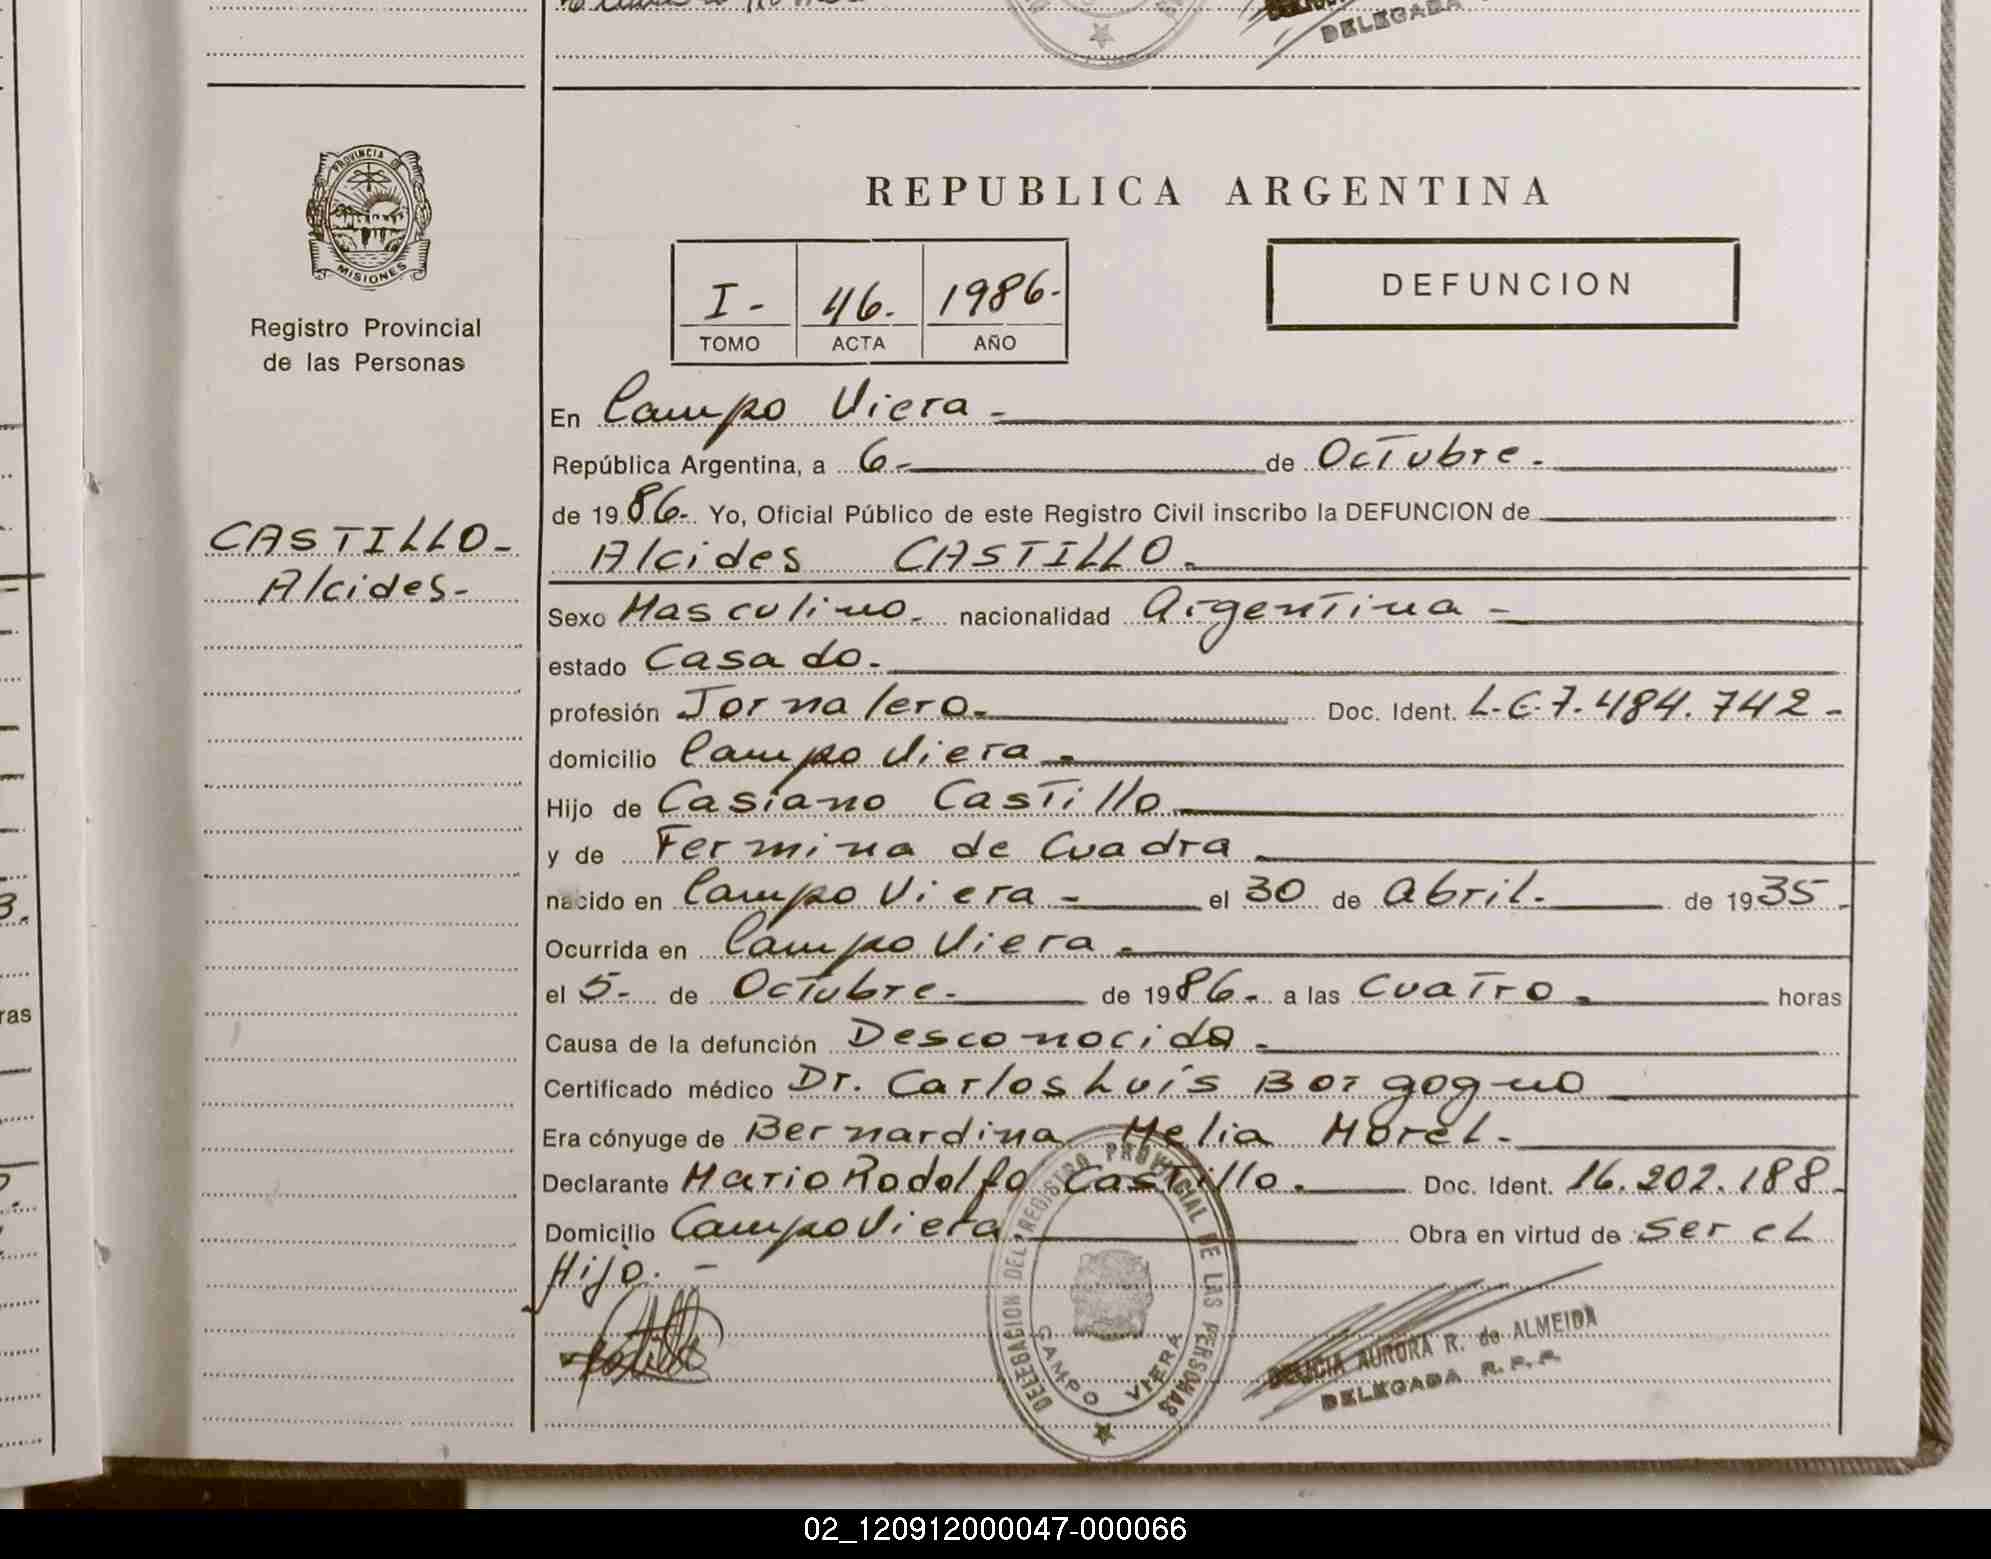 DELEGADA
PROVINCIA DE
MISIONES
Registro Provincial
de las Personas
CASTILLO-
Alcides-
REPUBLICA ARGENTINA
I- 46. 1986-
TOMO ACTA AÑO
DEFUNCION
En Campo Viera-
República Argentina, a 6- de Octubre-
de 1986- Yo, Oficial Público de este Registro Civil inscribo la DEFUNCION de
Alcides CASTILLO-
Sexo Masculino- nacionalidad Argentina-
estado Casado-
profesión Jornalero- Doc. Ident. L.E.7.484.742-
domicilio Campo Viera-
Hijo de Casiano Castillo-
y de Fermina de Cuadra
nacido en Campo Viera- el 30 de Abril- de 1935-
Ocurrida en Campo Viera-
el 5- de Octubre- de 1986- a las Cuatro- horas
Causa de la defunción Desconocida-
Certificado médico Dr. Carlos Luis Borgogno
Era cónyuge de Bernardina Melia Morel-
Declarante Mario Rodolfo Castillo- Doc. Ident. 16.202.188-
Domicilio Campo Viera Obra en virtud de ser el
Hijo.-
DELEGACION DEL REGISTRO PROVINCIAL DE LAS PERSONAS
CAMPO VIERA
DELICIA AURORA R. de ALMEIDA
DELEGADA R. P. P.
ras
02_120912000047-000066